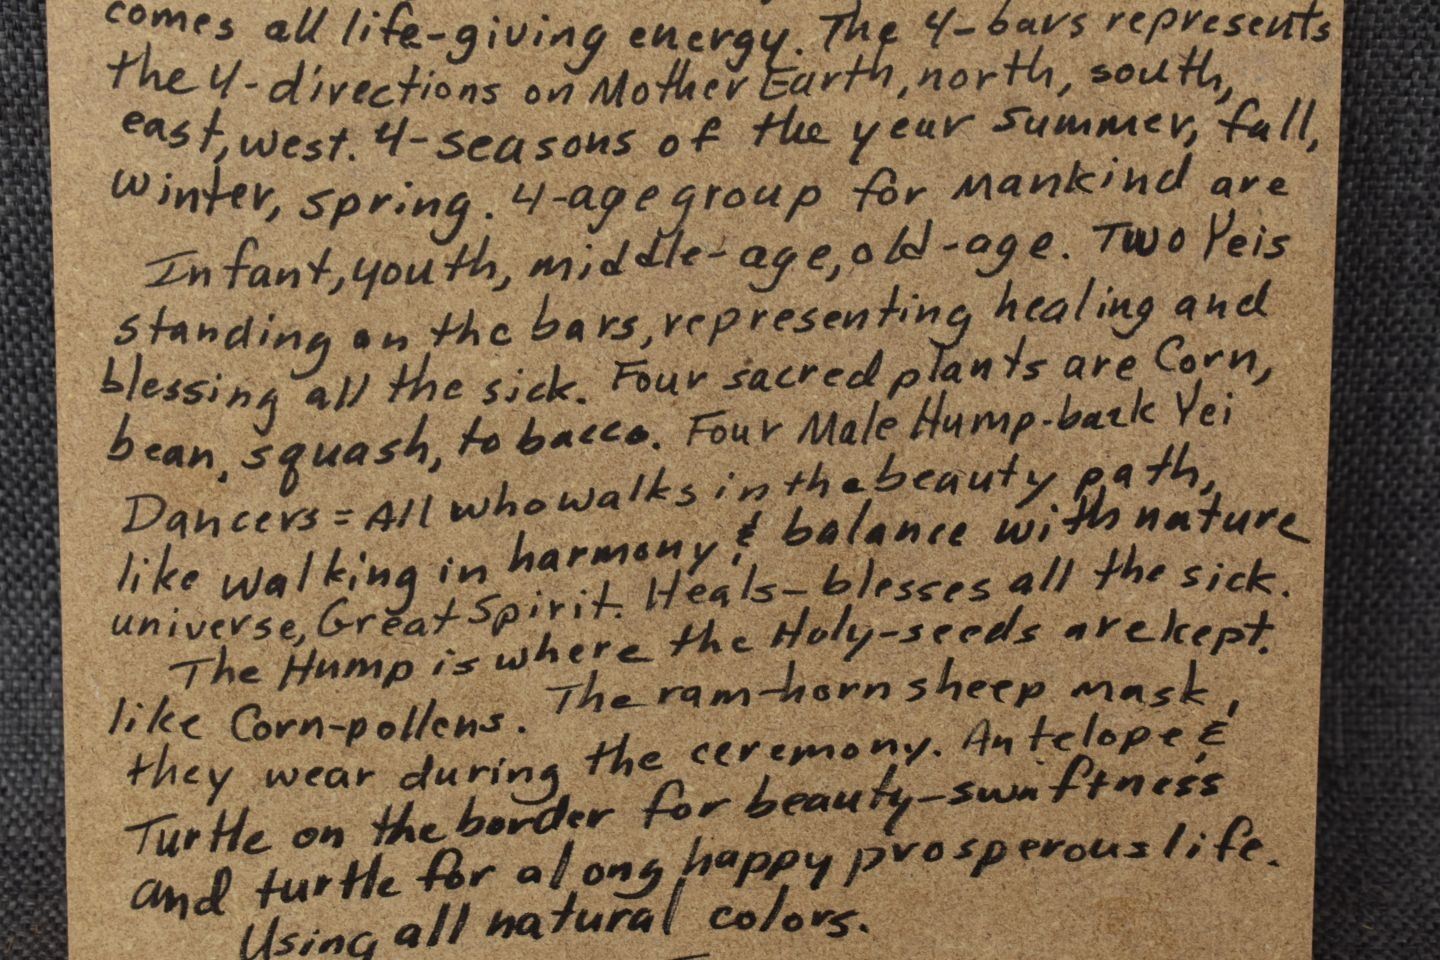 comes all life-giving energy. The 4-bars represents
the 4-directions on Mother Earth, north, south,
east, west. 4-seasons of the year summer, fall,
winter, spring. 4-age group for mankind are
Infant, youth, middle-age, old-age. Two Yeis
standing on the bars, representing healing and
blessing all the sick. Four sacred plants are Corn,
bean, squash, tobacco. Four Male Hump-back Yei
Dancers = All who walks in the beauty path,
like walking in harmony & balance with nature
universe, Great Spirit. Heals-blesses all the sick.
The Hump is where the Holy-seeds are kept.
like Corn-pollens. The ram-horn sheep mask,
they wear during the ceremony. Antelope &
Turtle on the border for beauty-swiftness
and turtle for along happy prosperous life.
Using all natural colors.